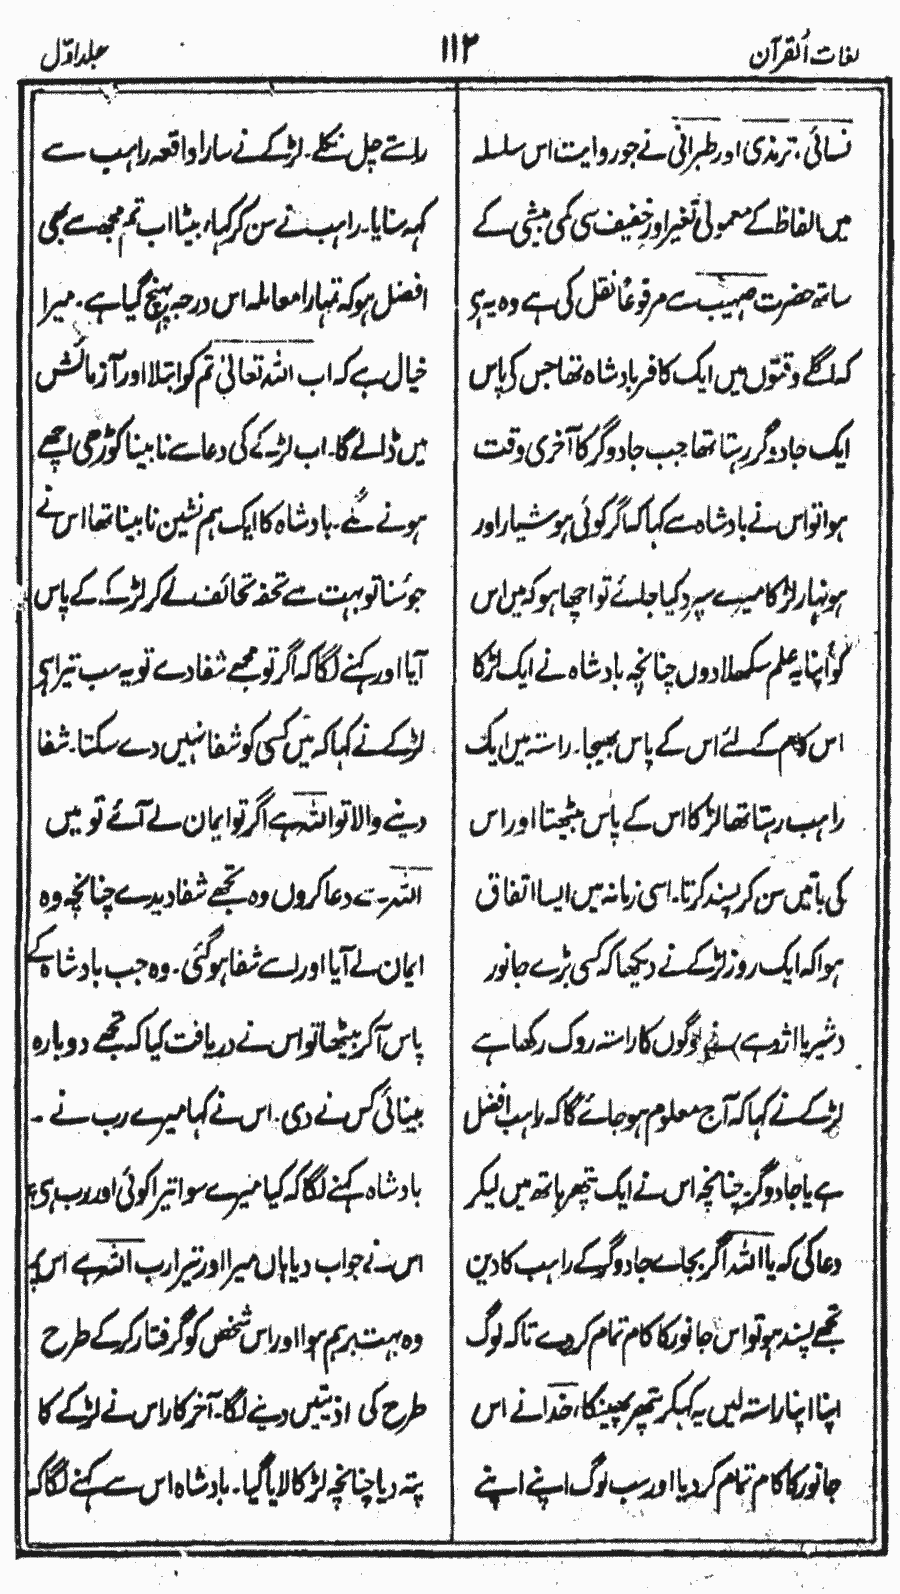 لغات القرآن
١١٢
جلد اوّل
نسائی، ترمذی اور طبرانی نے جو روایت اس سلسلہ
میں الفاظ کے معمولی تغیر اور خفیف سی کمی بیشی کے
ساتھ حضرت صہیب سے مرفوعاً نقل کی ہے وہ یہ ہے
کہ اگلے وقتوں میں ایک کافر بادشاہ تھا جس کی پاس
ایک جادوگر رہتا تھا جب جادوگر کا آخری وقت
ہوا تو اس نے بادشاہ سے کہا کہ اگر کوئی ہوشیار اور
ہونہار لڑکا میرے سپرد کیا جائے تو اچھا ہو کہ میں اس
کو اپنا یہ علم سکھلا دوں چنانچہ بادشاہ نے ایک لڑکا
اس کام کے لئے اس کے پاس بھیجا۔ راستہ میں ایک
راہب رہتا تھا لڑکا اس کے پاس بیٹھتا اور اس
کی باتیں سن کر پسند کرتا۔ اسی زمانہ میں ایسا اتفاق
ہوا کہ ایک روز لڑکے نے دیکھا کہ کسی بڑے جانور
(شیر یا اژدہے) نے لوگوں کا راستہ روک رکھا ہے
لڑکے نے کہا کہ آج معلوم ہو جائے گا کہ راہب افضل
ہے یا جادوگر۔ چنانچہ اس نے ایک پتھر ہاتھ میں لیکر
دعا کی کہ یا اللہ اگر بجائے جادوگر کے راہب کا دین
تجھے پسند ہو تو اس جانور کا کام تمام کر دے تاکہ لوگ
اپنا اپنا راستہ لیں یہ کہکر پتھر پھینکا، خدا نے اس
جانور کا کام تمام کر دیا اور سب لوگ اپنے اپنے
راستے چل نکلے۔ لڑکے نے سارا واقعہ راہب سے
کہہ سنایا۔ راہب نے سن کر کہا، بیٹا اب تم مجھ سے بھی
افضل ہو کہ تمہارا معاملہ اس درجہ پہنچ گیا ہے۔ میرا
خیال ہے کہ اب اللہ تعالیٰ تم کو ابتلا اور آزمائش
میں ڈالے گا۔ اب لڑکے کی دعا سے نابینا کوڑھی اچھے
ہونے لگے۔ بادشاہ کا ایک ہم نشین نابینا تھا اس نے
جو سُنا تو بہت سے تحفہ تحائف لے کر لڑکے کے پاس
آیا اور کہنے لگا کہ اگر تو مجھے شفا دے تو یہ سب تیرا ہی
لڑکے نے کہا کہ میں کسی کو شفا نہیں دے سکتا۔ شفا
دینے والا تو اللہ ہے اگر تو ایمان لے آئے تو میں
اللہ سے دعا کروں وہ تجھے شفا دیدے چنانچہ وہ
ایمان لے آیا اور اسے شفا ہو گئی۔ وہ جب بادشاہ کے
پاس آکر بیٹھا تو اس نے دریافت کیا کہ تجھے دوبارہ
بینائی کس نے دی۔ اس نے کہا میرے رب نے۔
بادشاہ کہنے لگا کہ کیا میرے سوا تیرا کوئی اور رب ہی ہے
اس نے جواب دیا ہاں میرا اور تیرا رب اللہ ہے اس پر
وہ بہت برہم ہوا اور اس شخص کو گرفتار کر کے طرح
طرح کی اذیتیں دینے لگا۔ آخر کار اس نے لڑکے کا
پتہ دیا چنانچہ لڑکا لایا گیا۔ بادشاہ اس سے کہنے لگا کہ